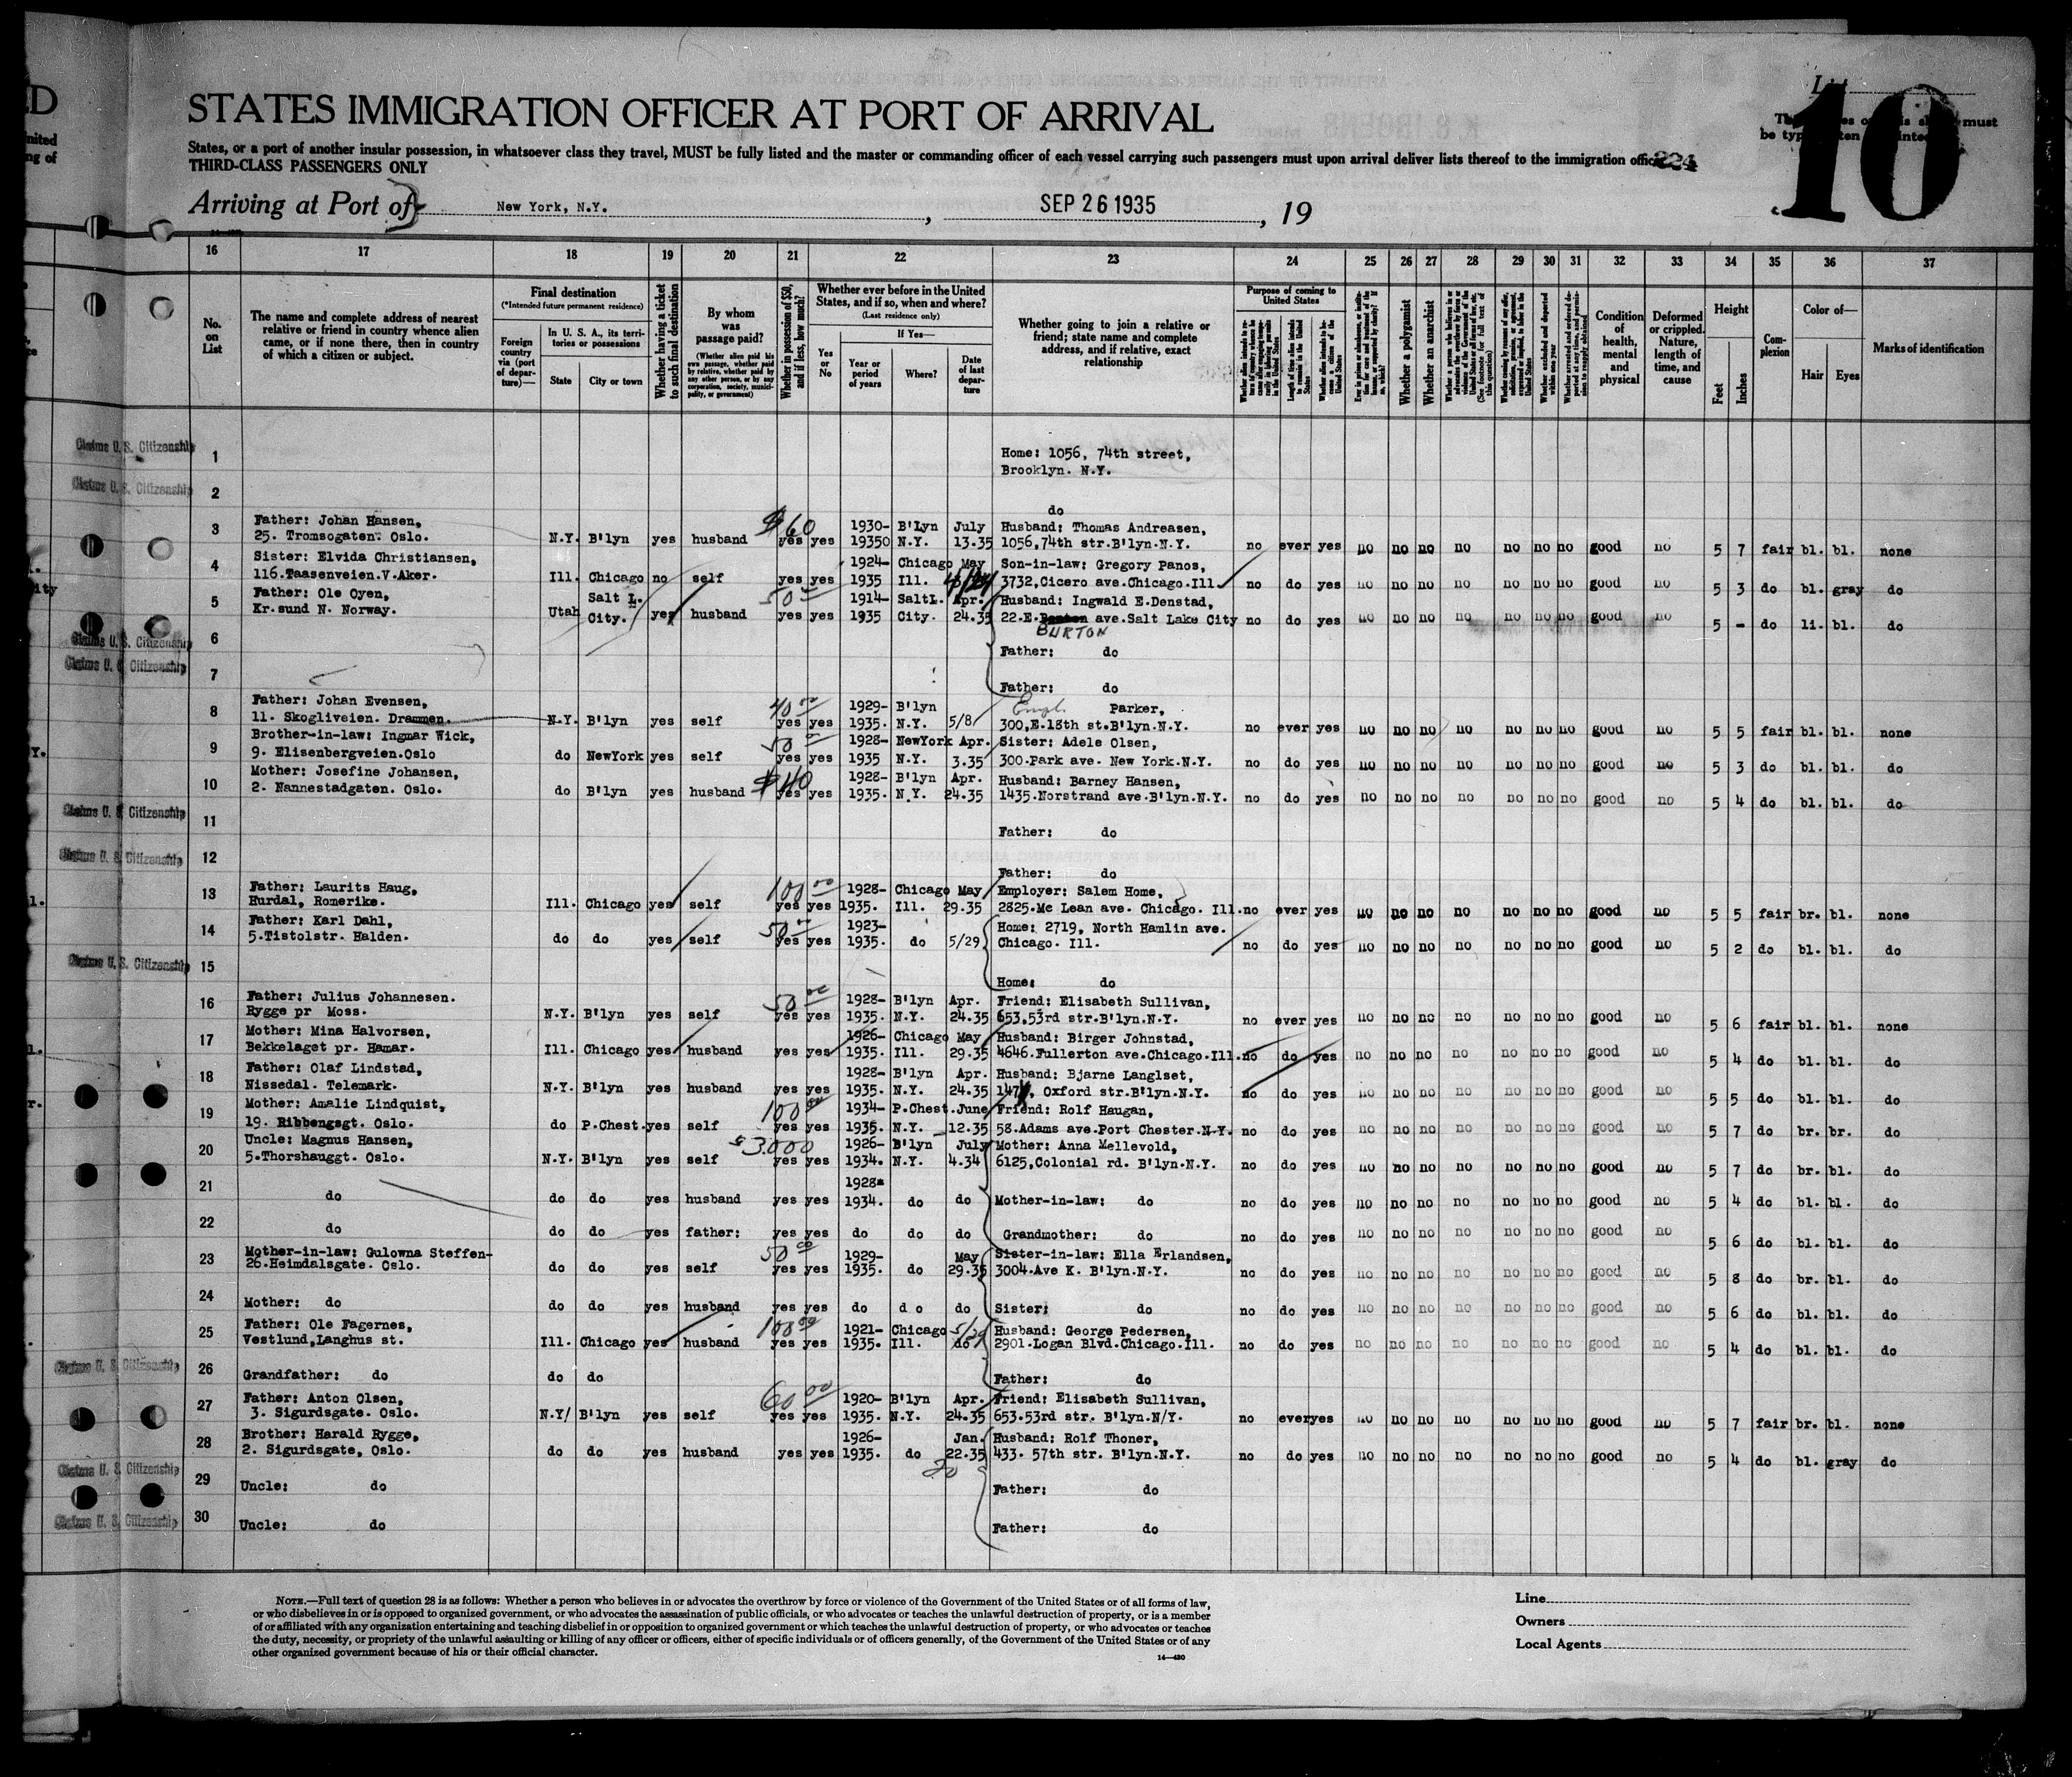 ED
STATES IMMIGRATION OFFICER AT PORT OF ARRIVAL
List
10
States, or a port of another insular possession, in whatsoever class they travel, MUST be fully listed and the master or commanding officer of each vessel carrying such passengers must upon arrival deliver lists thereof to the immigration
224
THIRD-CLASS PASSENGERS ONLY
Arriving at Port of New York, N.Y. , SEP 26 1935 , 19
16 17 18 19 20 21 22 23 24 25 26 27 28 29 30 31 32 33 34 35 36 37
No. on List
The name and complete address of nearest relative or friend in country whence alien came, or if none there, then in country of which a citizen or subject.
Final destination
(*Intended future permanent residence)
Foreign country via (port of departure)—
In U. S. A., its territories or possessions
State City or town
Whether having a ticket to such final destination
By whom was passage paid?
(Whether alien paid his own passage, whether paid by relative, whether paid by any other person, or by any corporation, society, municipality, or government)
Whether in possession of $50, and if less, how much?
Whether ever before in the United States, and if so, when and where?
(Last residence only)
Yes or No
If Yes—
Year or period of years
Where?
Date of last departure
Whether going to join a relative or friend; state name and complete address, and if relative, exact relationship
Purpose of coming to United States
Whether a polygamist
Whether an anarchist
Condition of health, mental and physical
Deformed or crippled. Nature, length of time, and cause
Height
Feet Inches
Complexion
Color of—
Hair Eyes
Marks of identification
Claims U. S. Citizenship 1 Home: 1056, 74th street,
Brooklyn. N.Y.
Claims U. S. Citizenship 2 do
3 Father: Johan Hansen, $60 1930- B'lyn July Husband: Thomas Andreasen,
25. Tromsogaten. Oslo. N.Y. B'lyn yes husband yes yes 19350 N.Y. 13.35 1056,74th str.B'lyn.N.Y. no ever yes no no no no no no no good no 5 7 fair bl. bl. none
4 Sister: Elvida Christiansen, 1924- Chicago May Son-in-law: Gregory Panos,
116.Taasenveien.V.Aker. Ill. Chicago no self yes yes 1935 Ill. 3732,Cicero ave.Chicago.Ill. no do yes no no no no no no no good no 5 3 do bl. gray do
5 Father: Ole Oyen, Salt L. 50 1914- SaltL. Apr. Husband: Ingwald E.Denstad,
Kr.sund N. Norway. Utah City. yes husband yes yes 1935 City. 24.35 22.E. ave.Salt Lake City no do yes no no no no no no no good no 5 - do li. bl. do
BURTON
Claims U. S. Citizenship 6 Father: do
Claims U. S. Citizenship 7 Father: do
8 Father: Johan Evensen, 40 00 1929- B'lyn Empl. Parker,
11. Skogliveien. Drammen. N.Y. B'lyn yes self yes yes 1935. N.Y. 5/8 300,E.18th st.B'lyn.N.Y. no ever yes no no no no no no no good no 5 5 fair bl. bl. none
9 Brother-in-law: Ingmar Wick, 50 1928- NewYork Apr. Sister: Adele Olsen,
9. Elisenbergveien.Oslo do NewYork yes self yes yes 1935 N.Y. 3.35 300.Park ave. New York.N.Y. no do yes no no no no no no no good no 5 3 do bl. bl. do
10 Mother: Josefine Johansen, $40 1928- B'lyn Apr. Husband: Barney Hansen,
2. Nannestadgaten. Oslo. do B'lyn yes husband yes yes 1935. N.Y. 24.35 1435.Norstrand ave.B'lyn.N.Y. no do yes no no no no no no no good no 5 4 do bl. bl. do
Claims U. S. Citizenship 11 Father: do
Claims U. S. Citizenship 12 Father: do
13 Father: Laurits Haug, 100 00 1928- Chicago May Employer: Salem Home,
Hurdal, Romerike. Ill. Chicago yes self yes yes 1935. Ill. 29.35 2825.Mc Lean ave. Chicago. Ill. no ever yes no no no no no no no good no 5 5 fair br. bl. none
14 Father: Karl Dahl, 50 00 1923- Home: 2719, North Hamlin ave.
5.Tistolstr. Halden. do do yes self yes yes 1935. do 5/29 Chicago. Ill. no do yes no no no no no no no good no 5 2 do bl. bl. do
Claims U. S. Citizenship 15 Home: do
16 Father: Julius Johannesen. 50 00 1928- B'lyn Apr. Friend: Elisabeth Sullivan,
Rygge pr Moss. N.Y. B'lyn yes self yes yes 1935. N.Y. 24.35 653,53rd str.B'lyn.N.Y. no ever yes no no no no no no no good no 5 6 fair bl. bl. none
17 Mother: Mina Halvorsen, 1926- Chicago May Husband: Birger Johnstad,
Bekkelaget pr. Hamar. Ill. Chicago yes husband yes yes 1935. Ill. 29.35 4646.Fullerton ave.Chicago.Ill. no do yes no no no no no no no good no 5 4 do bl. bl. do
18 Father: Olaf Lindstad, 1928- B'lyn Apr. Husband: Bjarne Langlset,
Nissedal. Telemark. N.Y. B'lyn yes husband yes yes 1935. N.Y. 24.35 Oxford str.B'lyn.N.Y. no do yes no no no no no no no good no 5 5 do bl. bl. do
19 Mother: Amalie Lindquist, 100 00 1934- P.Chest.June Friend: Rolf Haugan,
19. Ribbengsgt. Oslo. do P.Chest.yes self yes yes 1935. N.Y. 12.35 58.Adams ave.Port Chester.N.Y. no do yes no no no no no no no good no 5 7 do br. br. do
20 Uncle: Magnus Hansen, $3000 1926- B'lyn July Mother: Anna Mellevold,
5.Thorshauggt. Oslo. N.Y. B'lyn yes self yes yes 1934. N.Y. 4.34 6125,Colonial rd. B'lyn.N.Y. no do yes no no no no no no no good no 5 7 do br. bl. do
21 do do do yes husband yes yes 1928- 1934. do do Mother-in-law: do no do yes no no no no no no no good no 5 4 do bl. bl. do
22 do do do yes father: yes yes do do do Grandmother: do no do yes no no no no no no no good no 5 6 do bl. bl. do
23 Mother-in-law: Gulowna Steffen- 50 00 1929- May Sister-in-law: Ella Erlandsen,
26.Heimdalsgate. Oslo. do do yes self yes yes 1935. do 29.35 3004.Ave K. B'lyn.N.Y. no do yes no no no no no no no good no 5 8 do br. bl. do
24 Mother: do do do yes husband yes yes do d o do Sister: do no do yes no no no no no no no good no 5 6 do bl. bl. do
25 Father: Ole Fagernes, 100 00 1921- Chicago 5/29 Husband: George Pedersen,
Vestlund,Langhus st. Ill. Chicago yes husband yes yes 1935. Ill. do 2901.Logan Blvd.Chicago.Ill. no do yes no no no no no no no good no 5 4 do bl. bl. do
Claims U. S. Citizenship 26 Grandfather: do do do Father: do
27 Father: Anton Olsen, 60 00 1920- B'lyn Apr. Friend: Elisabeth Sullivan,
3. Sigurdsgate. Oslo. N.Y/ B'lyn yes self yes yes 1935. N.Y. 24.35 653.53rd str. B'lyn.N/Y. no everyes no no no no no no no good no 5 7 fair br. bl. none
28 Brother: Harald Rygge, 1926- Jan. Husband: Rolf Thoner,
2. Sigurdsgate, Oslo. do do yes husband yes yes 1935. do 22.35 433. 57th str. B'lyn.N.Y. no do yes no no no no no no no good no 5 4 do bl. gray do
Claims U. S. Citizenship 29 Uncle: do Father: do
Claims U. S. Citizenship 30 Uncle: do Father: do
NOTE.—Full text of question 28 is as follows: Whether a person who believes in or advocates the overthrow by force or violence of the Government of the United States or of all forms of law,
or who disbelieves in or is opposed to organized government, or who advocates the assassination of public officials, or who advocates or teaches the unlawful destruction of property, or is a member
of or affiliated with any organization entertaining and teaching disbelief in or opposition to organized government or which teaches the unlawful destruction of property, or who advocates or teaches
the duty, necessity, or propriety of the unlawful assaulting or killing of any officer or officers, either of specific individuals or of officers generally, of the Government of the United States or of any
other organized government because of his or their official character.
14—430
Line
Owners
Local Agents